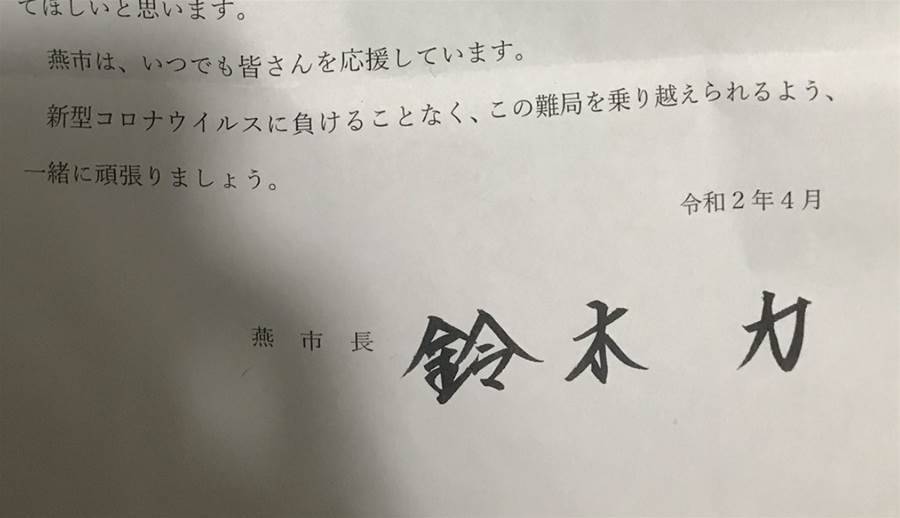 てほしいと思います。
燕市は、いつでも皆さんを応援しています。
新型コロナウイルスに負けることなく、この難局を乗り越えられるよう、
一緒に頑張りましょう。
令和２年４月
燕市長 鈴木 力